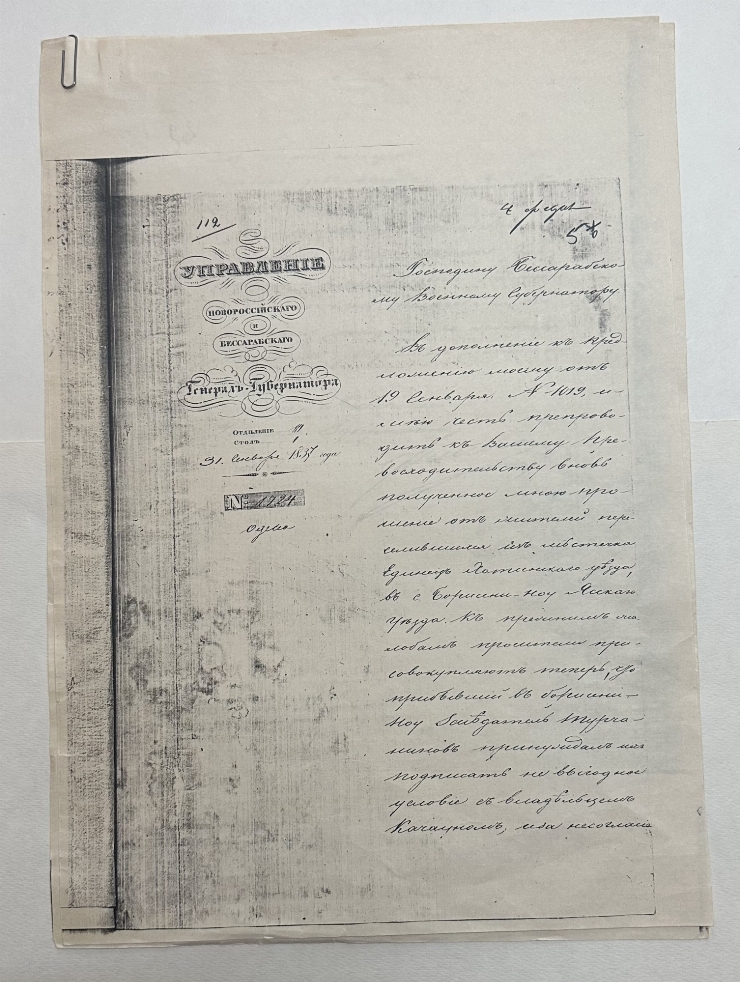 112
УПРАВЛЕНІЕ
НОВОРОССІЙСКАГО
И
БЕССАРАБСКАГО
Генералъ-Губернатора
ОТДѢЛЕНІЕ
СТОЛЪ
31. Генваря 1837 года
№ 1724
Одесса
Господину Бессарабско-
му Военному Губернатору
Въ дополненіе къ пред-
ложенію моему отъ
19 Генваря № 1019, и-
мѣю честь препрово-
дить къ Вашему Пре-
восходительству вновь
полученное мною про-
шеніе отъ жителей пере-
селившихся изъ мѣстечка
Единецъ Хотинскаго уѣзда,
въ с Боришни-ноу Ясскаго
уѣзда. Къ прежнимъ жа-
лобамъ просители при-
совокупляютъ теперь, что
прибывшій въ Боришни-
ноу Засѣдатель Турча-
ниновъ принуждалъ ихъ
подписать не выгодное
условіе съ владѣльцемъ
несогласіе